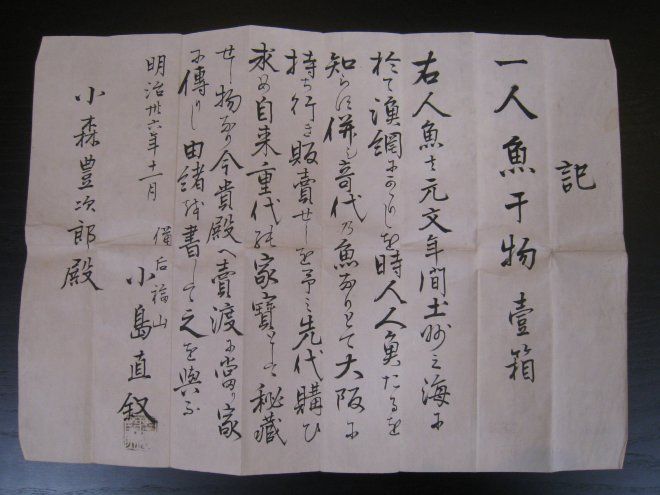 記
一人魚干物 壹箱
右人魚ハ元文年间土州之海ニ
於て漁網ニかゝりしを時人人魚たるを
知らす併し奇代乃魚なりとて大阪ニ
持ち行き販賣せしを予之先代購ひ
求め自来重代の家寶として秘藏
せし物なり今貴殿へ賣渡ニ當り家
ニ傳りし由緒を書して之を與ふ
明治卅六年十一月
備后福山
小島直叙
小森豊次郎殿